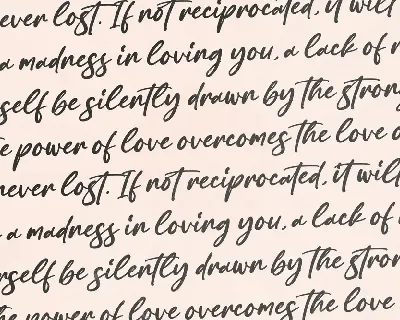 ever lost. If not reciprocated, it will
a madness in loving you, a lack of
self be silently drawn by the strong
power of love overcomes the love
never lost. If not reciprocated, it will
a madness in loving you, a lack of
rself be silently drawn by the stron
he power of love overcomes the love